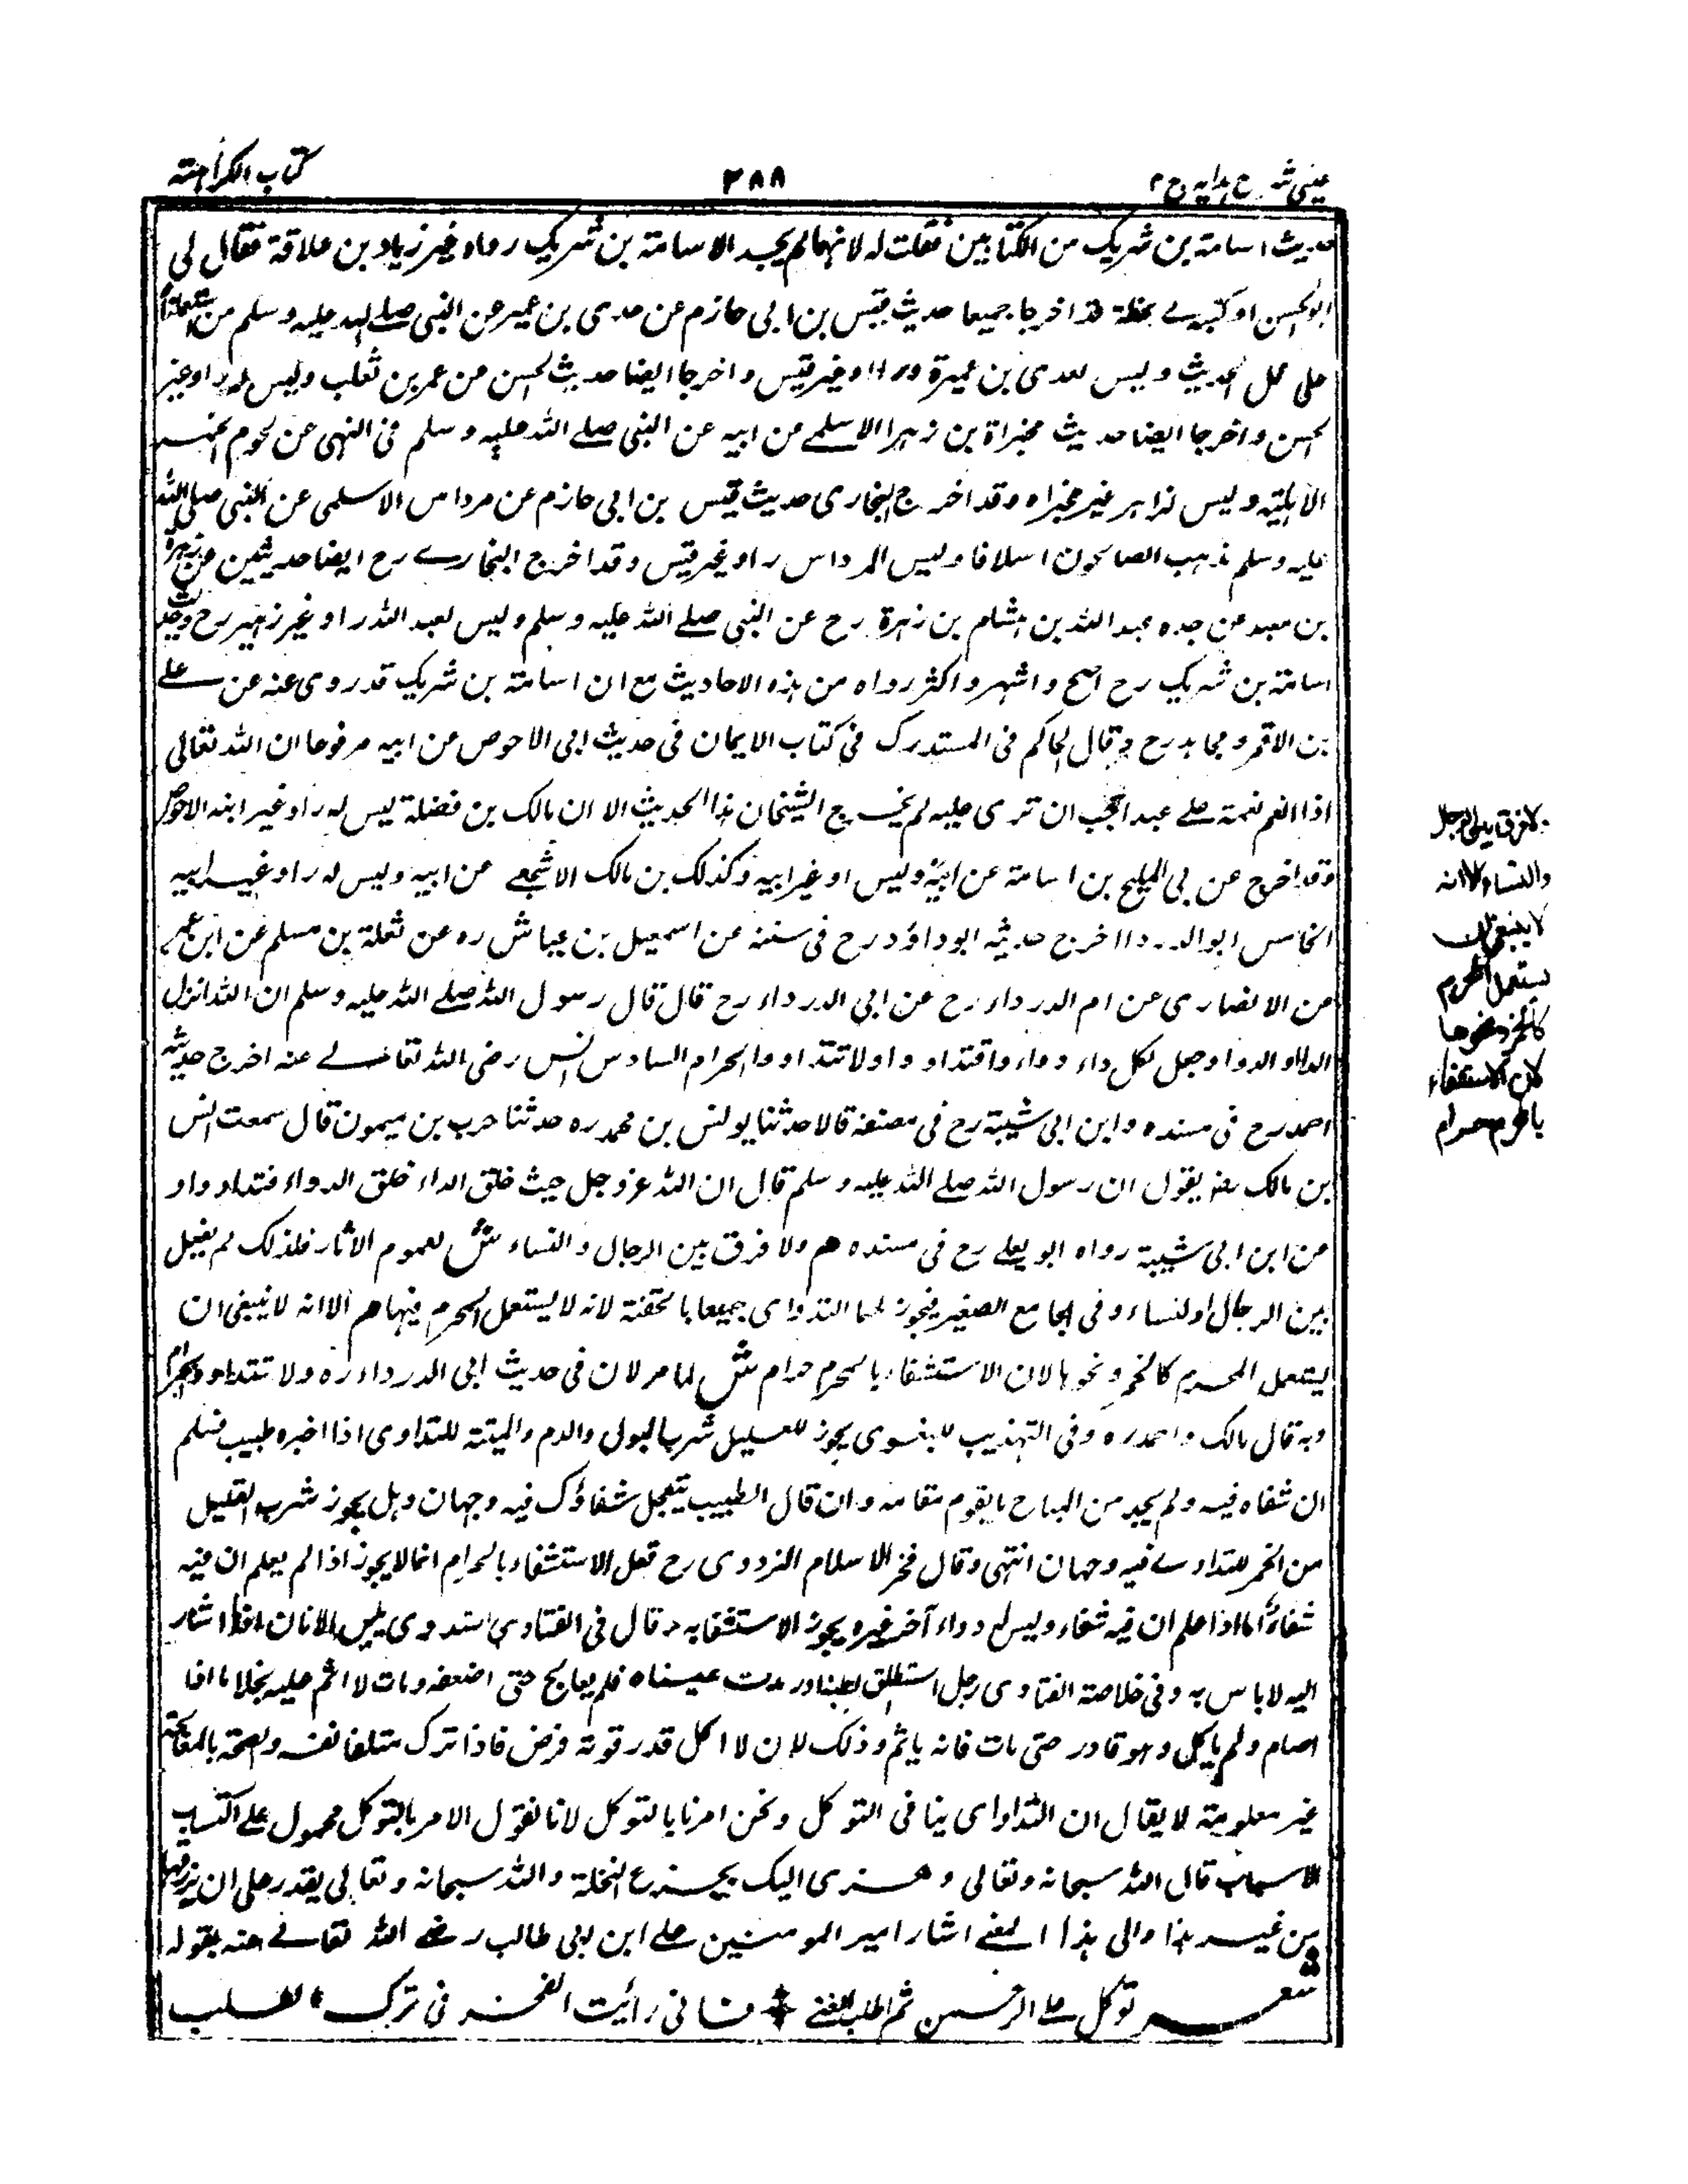 عینی شرح ہدایہ ج ٢
٣٨٨
کتاب الکراہتہ
حدیث اسامة بن شریک من الکتابین فقلت له لانهما لم یجد الاسامة بن شریک رواه غیر زیاد بن علاقة فقال لی
ابو الحسن او کتبه لی بخطه قد اخرجا جمیعا حدیث قیس بن ابی حازم عن عدی بن عمیر عن النبی صلے الله علیه وسلم من
علی عمل الحدیث ولیس لعدی بن عمیرة غیر قیس واخرجا ایضا حدیث الحسن عن عمر بن ثعلب ولیس له راو غیر
الحسن واخرجا ایضا حدیث مجزاة بن زہر الاسلمے عن ابیه عن النبی صلے الله علیه وسلم فی النهی عن لحوم الحمر
الاہلیة ولیس لزاہر غیر مجزاه وقد اخرج البخاری حدیث قیس بن ابی حازم عن مرداس الاسلمی عن النبی صلی الله
علیه وسلم یذہب الصالحون اسلافا ولیس المرداس راو غیر قیس وقد اخرج البخارے رح ایضا حدیثین عن زہرة
بن معبد عن جده عبد الله بن ہشام بن زہرة رح عن النبی صلے الله علیه وسلم ولیس لعبد الله راو غیر زہیر رح وحدیث
اسامة بن شریک رح اصح واشهر واکثر رواه من ہذه الاحادیث مع ان اسامة بن شریک قد روی عنه عن علے
بن الاقمر ومجاہد رح وقال الحاکم فی المستدرک فی کتاب الایمان فی حدیث ابی الاحوص عن ابیه مرفوعا ان الله تعالی
اذا انعم نعمة علے عبد احب ان تری علیه لم یخرج الشیخان ہذا الحدیث الا ان مالک بن نضلة لیس له راو غیر ابنه الاحوص
وقد اخرج عن ابی الملیح بن اسامة عن ابیه ولیس راو غیر ابیه وکذلک بن مالک الاشجعے عن ابیه ولیس له راو غیر ابیه
الخامس ابو الدردا اخرج حدیثه ابو داؤد رح فی سننه عن اسمعیل بن عیاش ره عن ثعلبة بن مسلم عن ابن عمر
عن الانصاری عن ام الدرداء رح عن ابی الدرداء رح قال قال رسول الله صلے الله علیه وسلم ان الله انزل
الداء والدوا وجعل لکل داء دواء واقتداووا ولا تتداووا بالحرام السادس انس رضی الله تعالے عنه اخرج حدیثه
احمد رح فی مسنده وابن ابی شیبة رح فی مصنفه قالا حدثنا یونس بن محمد ره حدثنا حرب بن میمون قال سمعت انس
بن مالک رضہ یقول ان رسول الله صلے الله علیه وسلم قال ان الله عز وجل حیث خلق الداء خلق الدواء فتداووا
من ابن ابی شیبة رواه ابو یعلے رح فی مسنده هم ولا فرق بین الرجال والنساء ش لعموم الاثار فلذلک لم یفصل
بین الرجال والنساء وفی الجامع الصغیر فیجوز لهما التداوی جمیعا بالحقنة لانه لا یستعمل المحرم فیها هم الا انه لا ینبغی ان
یستعمل المحرم کالخمر ونحوها لان الاستشفاء بالمحرم حرام ش لما مر لان فی حدیث ابی الدرداء ره ولا تتداووا بحرام
وبه قال مالک واحمد ره وفی التهذیب للبغوی یجوز للعلیل شرب البول والدم والمیتة للتداوی اذا اخبره طبیب مسلم
ان شفاه فیه ولم یجد من المباح ما یقوم مقامه وان قال الطبیب یتعجل شفاؤک فیه وجهان وہل یجوز شرب القلیل
من الخمر للتداوے فیه وجهان انتهی وقال فخر الاسلام البزدوی رح قعل الاستشفاء بالحرام انما لا یجوز اذا لم یعلم ان فیه
شفاء اما اذا علم ان فیه شفاء ولیس له دواء آخر غیره یجوز الاستشفا به وقال فی الفتاوی
الیه لا باس به وفی خلاصة الفتاوی رجل استطلق بطنه او رمدت عیناه فلم یعالج حتی اضعفه ومات لا اثم علیه بخلاف ما اذا
صام ولم یاکل وہو قادر حتی مات فانه یاثم وذلک لان الاکل قدر قوته فرض فاذا ترک متلفا نفسه والصحة بالمعالجة
غیر معلومة لا یقال ان التداوای ینافی التوکل ونحن امرنا بالتوکل لانا نقول الامر بالتوکل محمول علے اکتساب
الاسباب قال الله سبحانه وتعالی وهزی الیک بجذع النخلة والله سبحانه وتعالی یقدر علی ان یرزقها
من غیر ہذا والی ہذا المعنے اشار امیر المومنین علے ابن ابی طالب رضے الله تعالے عنه بقوله
شعر توکل علے الرحمن ثم اطلب الغنے ٭ فانی رأیت الفقر فی ترک الطلب
ولا فرق بین الرجل
والنساء الا انه
لا ینبغی ان
یستعمل المحرم
کالخمر ونحوها
لان الاستشفاء
بالمحرم حرام